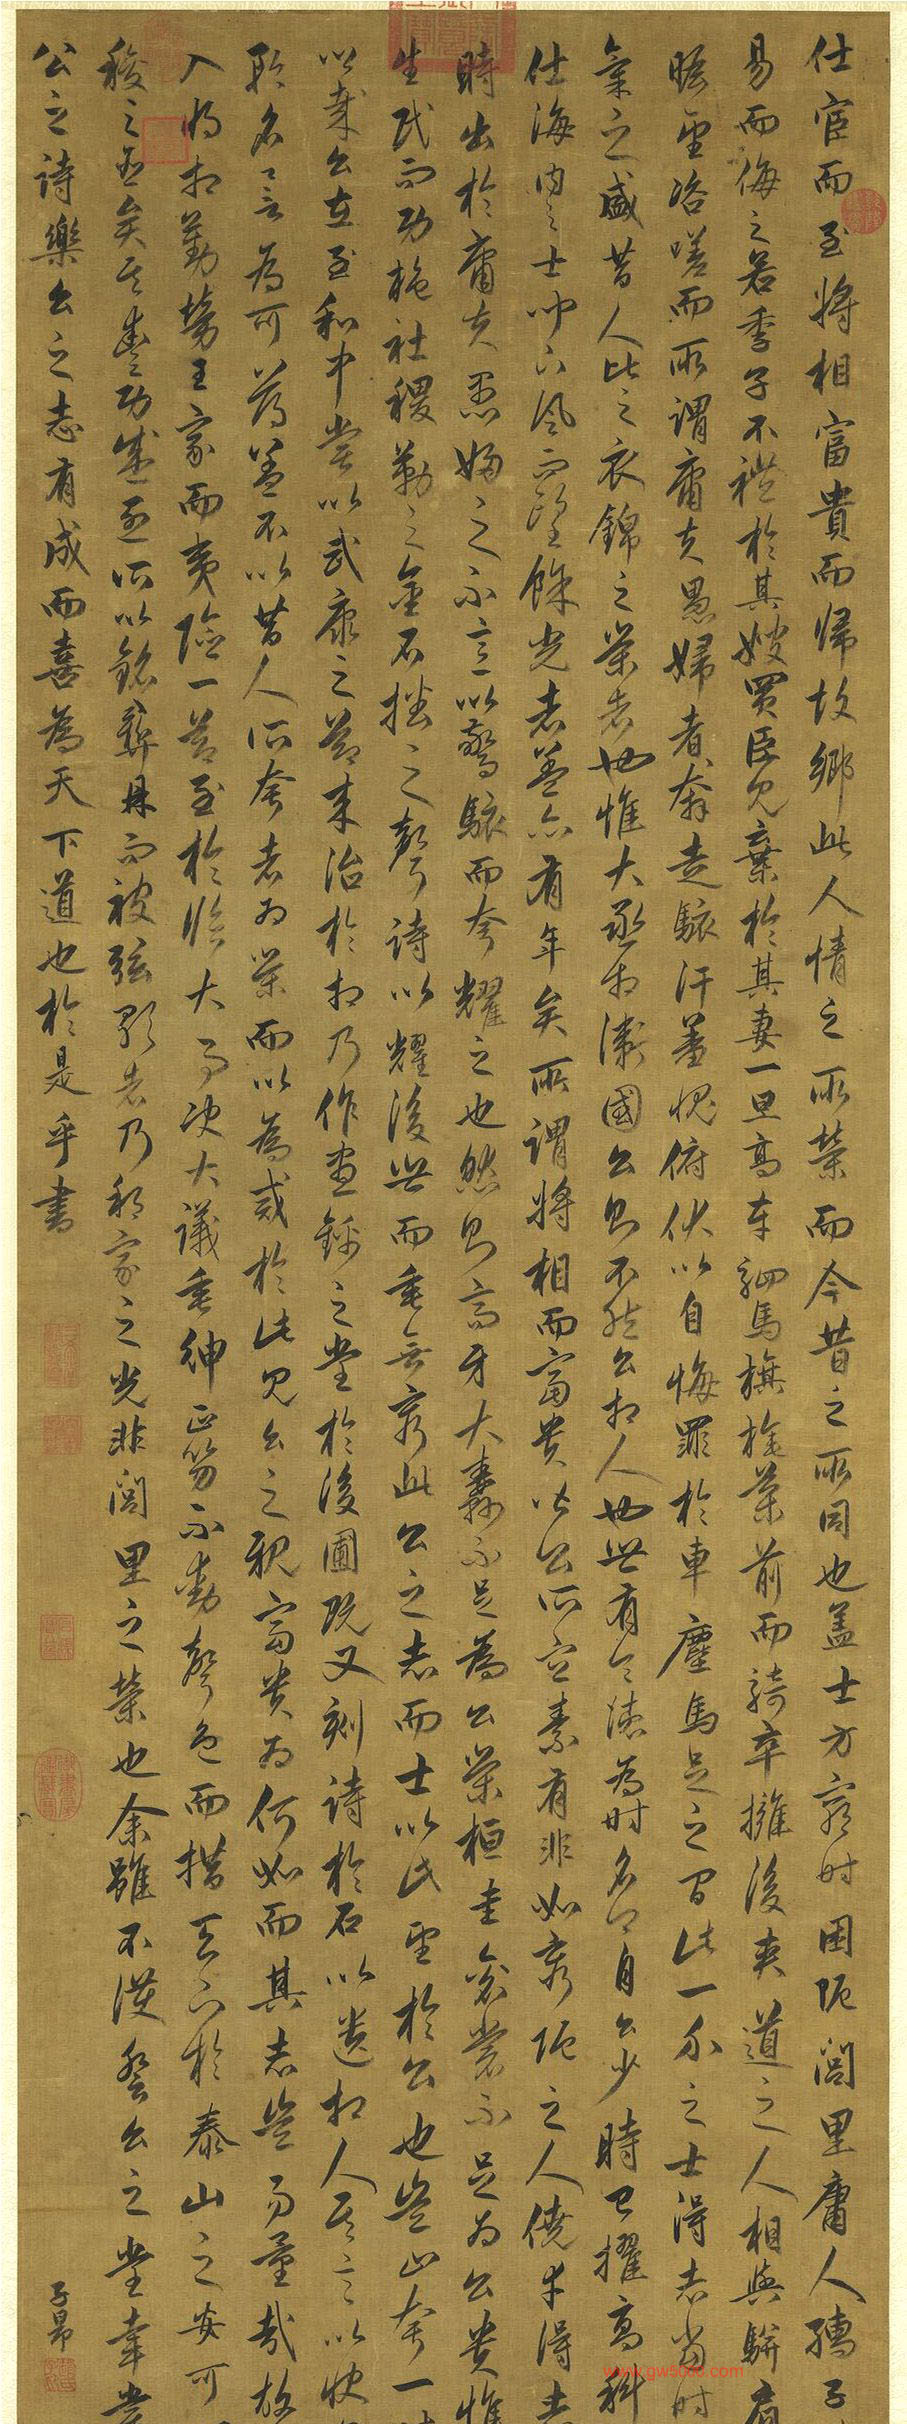 仕宦而至將相富貴而歸故鄉此人情之所榮而今昔之所同也蓋士方窮时困阨閭里庸人孺子
易而侮之若季子不禮於其嫂買臣見棄於其妻一旦高車駟馬旗旄導前而騎卒擁後夾道之人相與駢肩
瞻望咨嗟而所謂庸夫愚婦者奔走駭汗羞愧俯伏以自悔罪於車塵馬足之間此一介之士得志當时
氣之盛昔人比之衣錦之榮者也惟大丞相衛國公則不然公相人也世有令德為时名卿自公少時已擢高科
仕海內之士聞下風而望餘光者蓋亦有年矣所謂將相而富貴皆公所宜素有非如窮阨之人僥幸得志
時出於庸夫愚婦之不意以驚駭而夸耀之也然則高牙大纛不足為公榮桓圭袞裳不足為公貴惟
生民而功施社稷勒之金石播之聲詩以耀後世而垂無窮此公之志而士以此望於公也豈止夸一
哉公在至和中嘗以武康之節來治於相乃作晝錦之堂於後圃既又刻詩於石以遺相人其言以快
名譽為可薄蓋不以昔人所夸者為榮而以為戒於此見公之視富貴為何如而其志豈易量哉故
入將相勤勞王家而夷險一節至於臨大事決大議垂紳正笏不動聲色而措天下於泰山之安可
稷之臣矣其豐功盛烈所以銘彝鼎而被弦歌者乃邦家之光非閭里之榮也余雖不獲登公之堂幸嘗
公之詩樂公之志有成而喜為天下道也於是乎書
子昂
www.gw5000.com